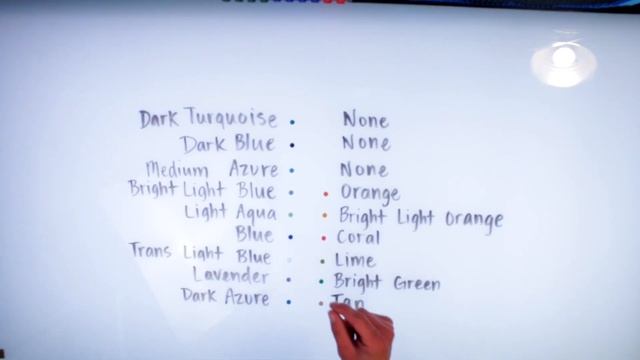 Dark Turquoise None
Dark Blue None
Medium Azure None
Bright Light Blue Orange
Light Aqua Bright Light Orange
Blue Coral
Trans Light Blue Lime
Lavender Bright Green
Dark Azure Tan